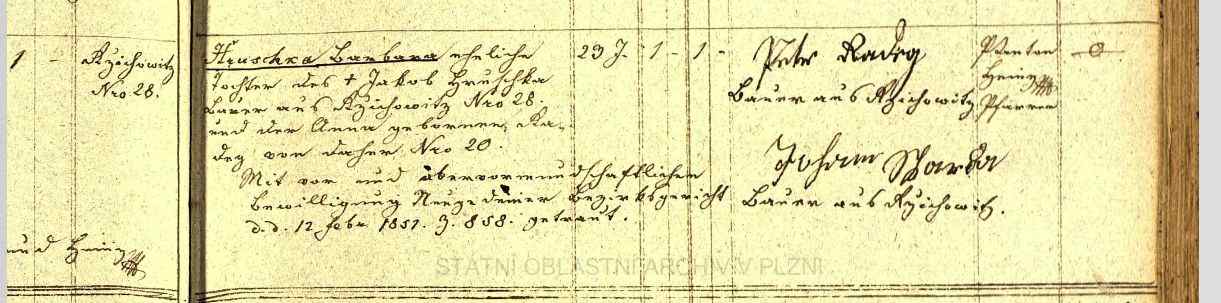 1 - Kzichowitz
Nro 28.
Hruschka Barbara eheliche
Tochter des † Jakob Hruschka
Bauer aus Kzichowitz Nro 28.
und der Anna gebornen Ra-
deg von daher Nro 20.
Mit vor und obervormundschaftlichen
Bewilligung Neugedeiner Bezirksgericht
d.d. 12 Febr. 1851. Z. 858. getraut.
23 J. 1 - 1 -
Petr Radeg
Bauer aus Kzichowitz
Johann Swarda
Bauer aus Kzichowitz.
Heiny
Pfarrer
-0-
und Heiny
STÁTNÍ OBLASTNÍ ARCHIV V PLZNI